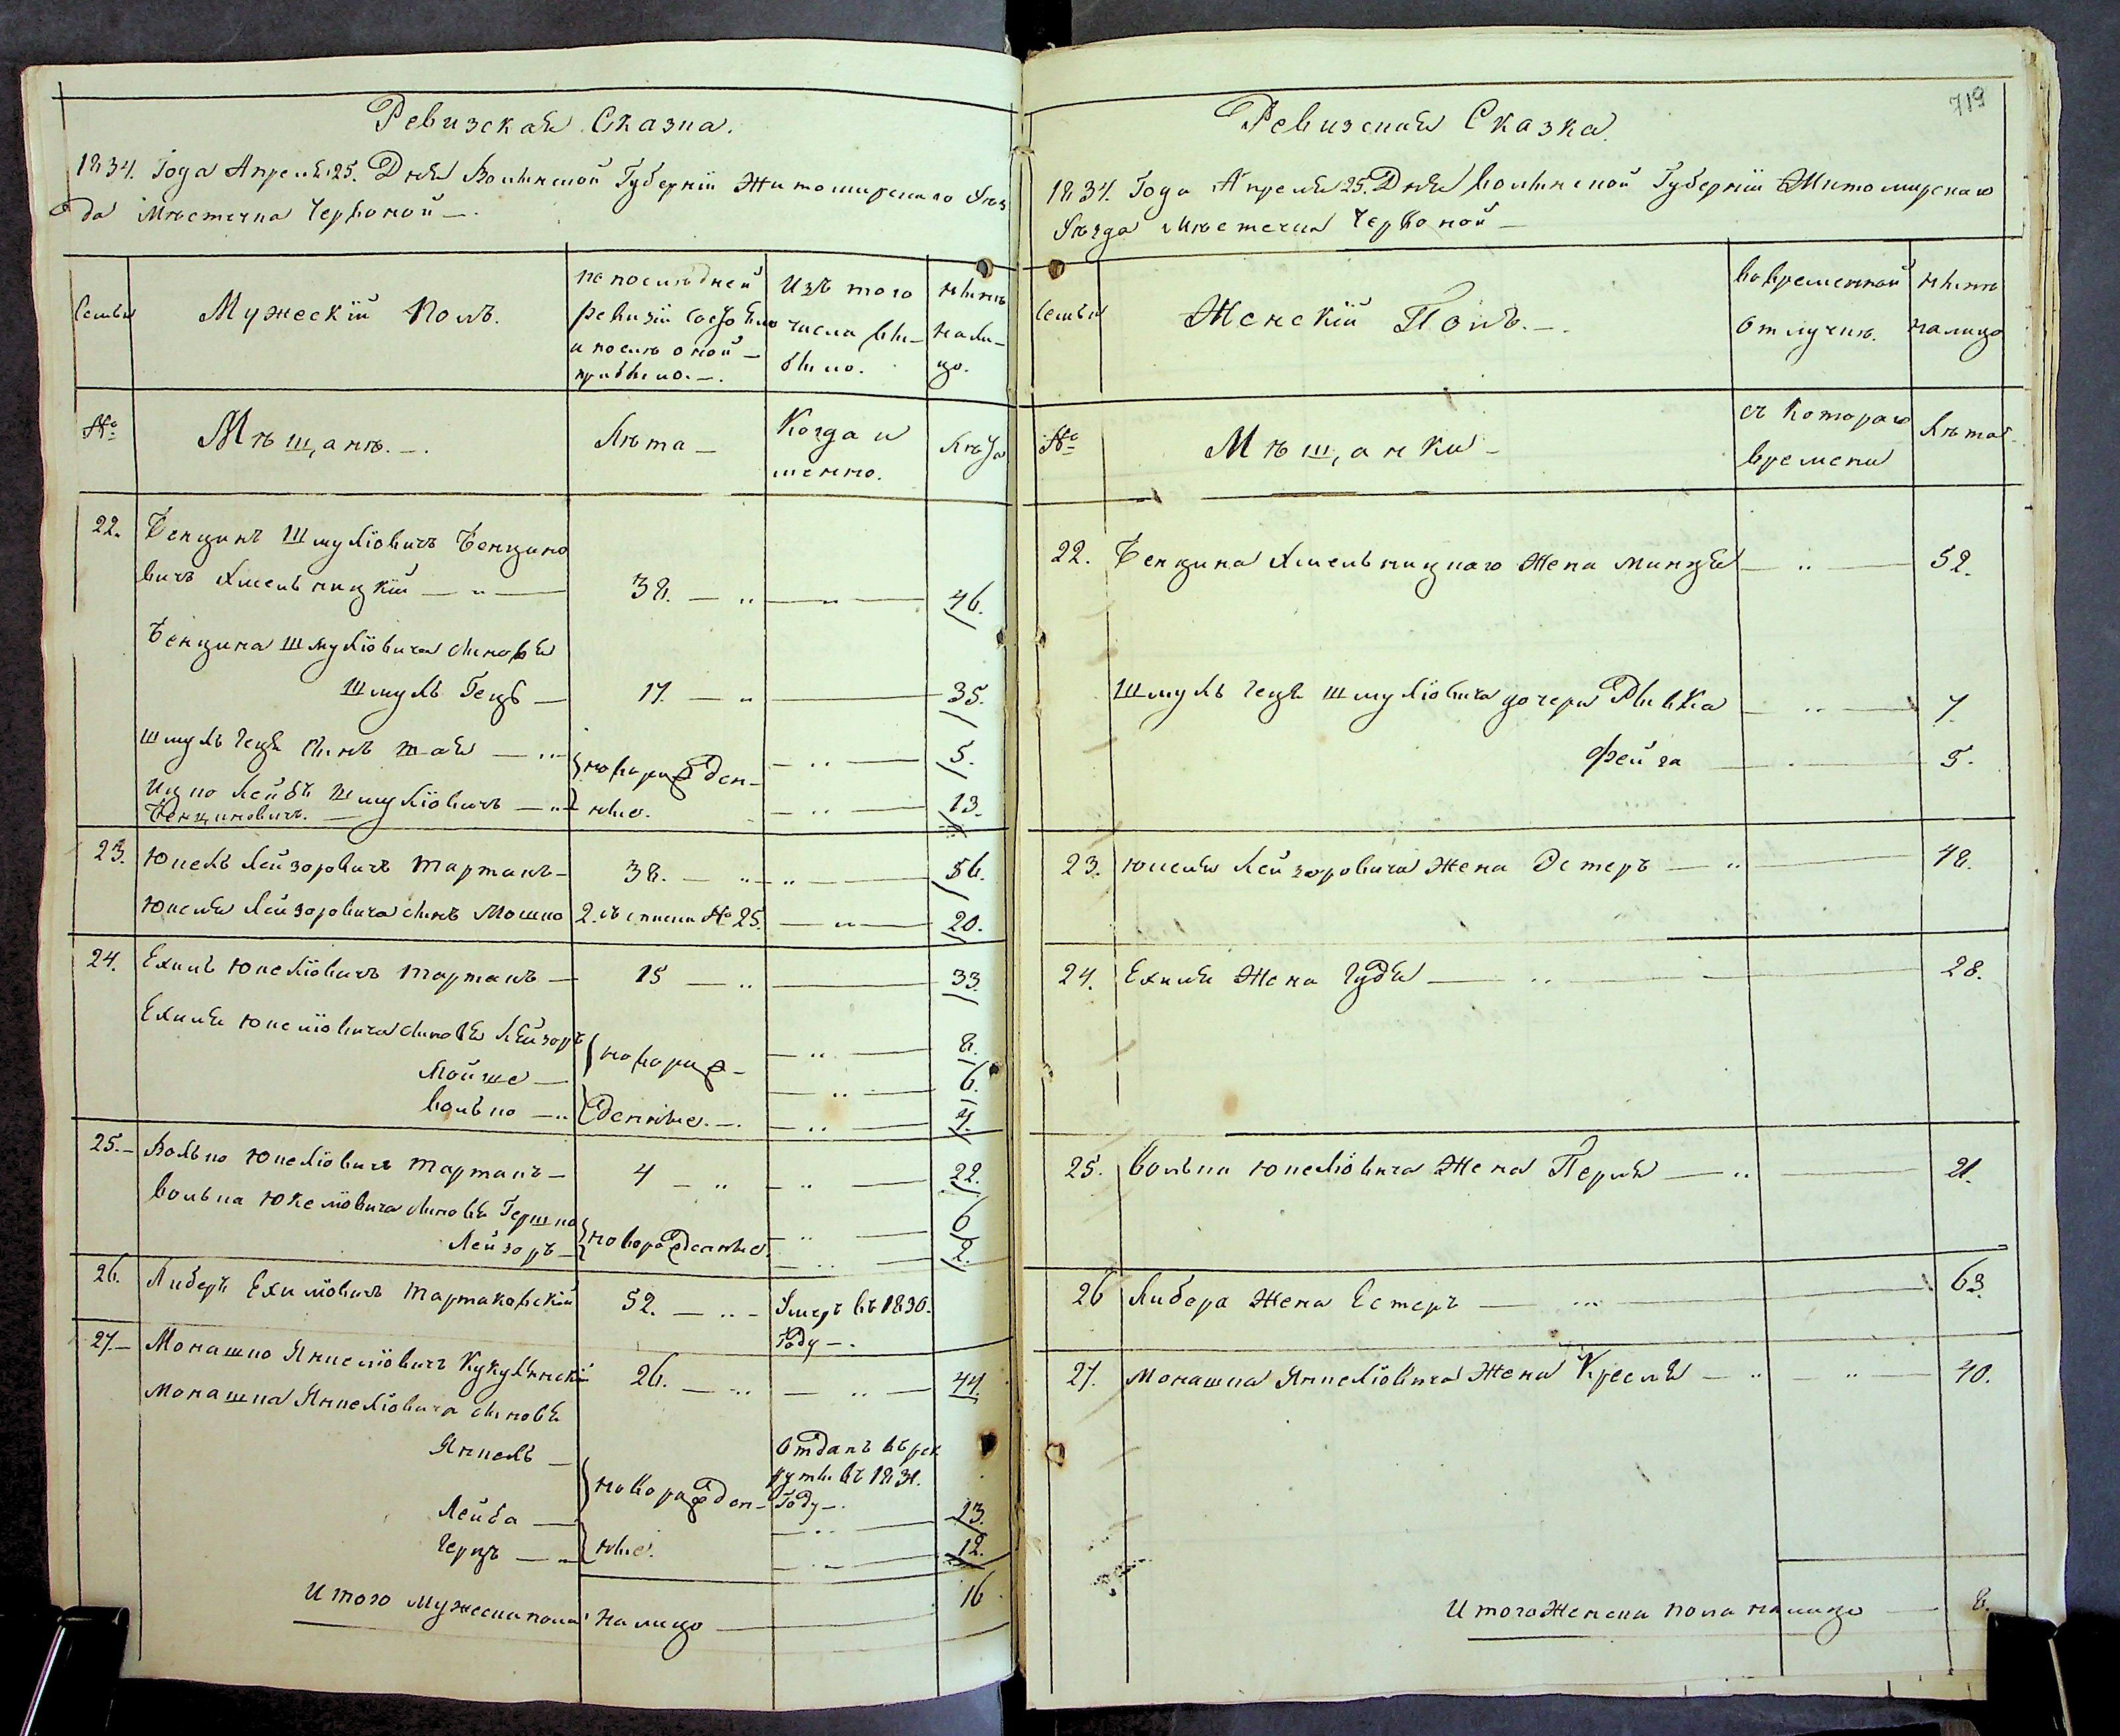 Ревизская Сказка.
1834. Года Апреля 25. Дня Волынской Губерніи Житомирскаго Уѣз
да Мѣстечка Червоной —.
Семьи
Мужескій Полъ.
по послѣдней
ревизіи состояло
и послѣ оной —
прибыло. —.
Изъ того
числа вы-
было.
Нынѣ
нали-
цо.
№
Мѣщанѣ. —.
Лѣта —
Когда и
менно.
Лѣта
22. Бенционъ Шмуліовичъ Бенцино
вичъ Хмельницкій — 38. — 46.
Бенцина Шмуліовича сыновья
Шмуль Гецъ — 17. — 35.
Шмуль Геця сынъ — 5.
новорожден-
ные.
Ицко Лейбъ Шмуліовичъ — 13.
Бенциновичъ. —
23. Юкель Лейзоровичъ Тартакъ — 38. — 56.
Юкеля Лейзоровича сынъ Мошко 2. съ № 25. — 20.
24. Ехиль Юкеліовичъ Тартакъ — 15 — 33.
Ехиля Юкеліовича сыновья Лейзоръ — 8.
новорож-
Мойше — 6.
Волько — денные. —. 4.
25. — Волько Юкеліовичъ Тартакъ — 4 — 22.
Волька Юкеліовича сыновья Гершко — 6
Лейзоръ — новорожденные. 2.
26. Либеръ Ехиліовичъ Тартаковскій 52. — Умеръ въ 1830.
Году —.
27. — Монашко Янкеліовичъ 26. — 44.
Монашка Янкеліовича сыновья
Янкель — Отданъ въ рек
руты въ 1831.
новорожден- Году —.
Лейба — 13.
Герцъ — ные. 12.
Итого мужеска пола налицо — 16
719
Ревизская Сказка.
1834. Года Апреля 25. Дня Волынской Губерніи Житомирскаго
Уѣзда Мѣстечка Червоной —
Семьи
Женскій Полъ. —.
Во временной
отлучкѣ.
Нынѣ
налицо
№
Мѣщанки —
съ Котораго
времени
Лѣта
22. Бенцина Хмельницкаго Жена Минця — 52.
Шмуль Геця Шмуліовича дочери Рывка — 7.
Фейга — 5.
23. Юкеля Лейзоровича Жена Эстеръ — 48.
24. Ехиля Жена Гудя — 28.
25. Волька Юкеліовича Жена Перля — 21.
26 Либера Жена Естеръ — 63.
27. Монашка Янкеліовича Жена Кресля — 40.
Итого Женска пола налицо — 8.